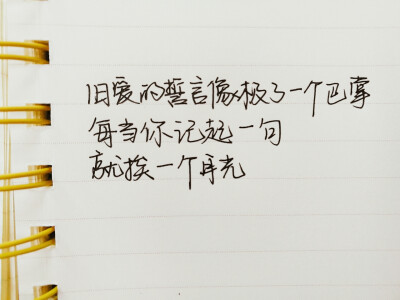 旧爱的誓言像极了一个巴掌
每当你记起一句
就挨一个耳光